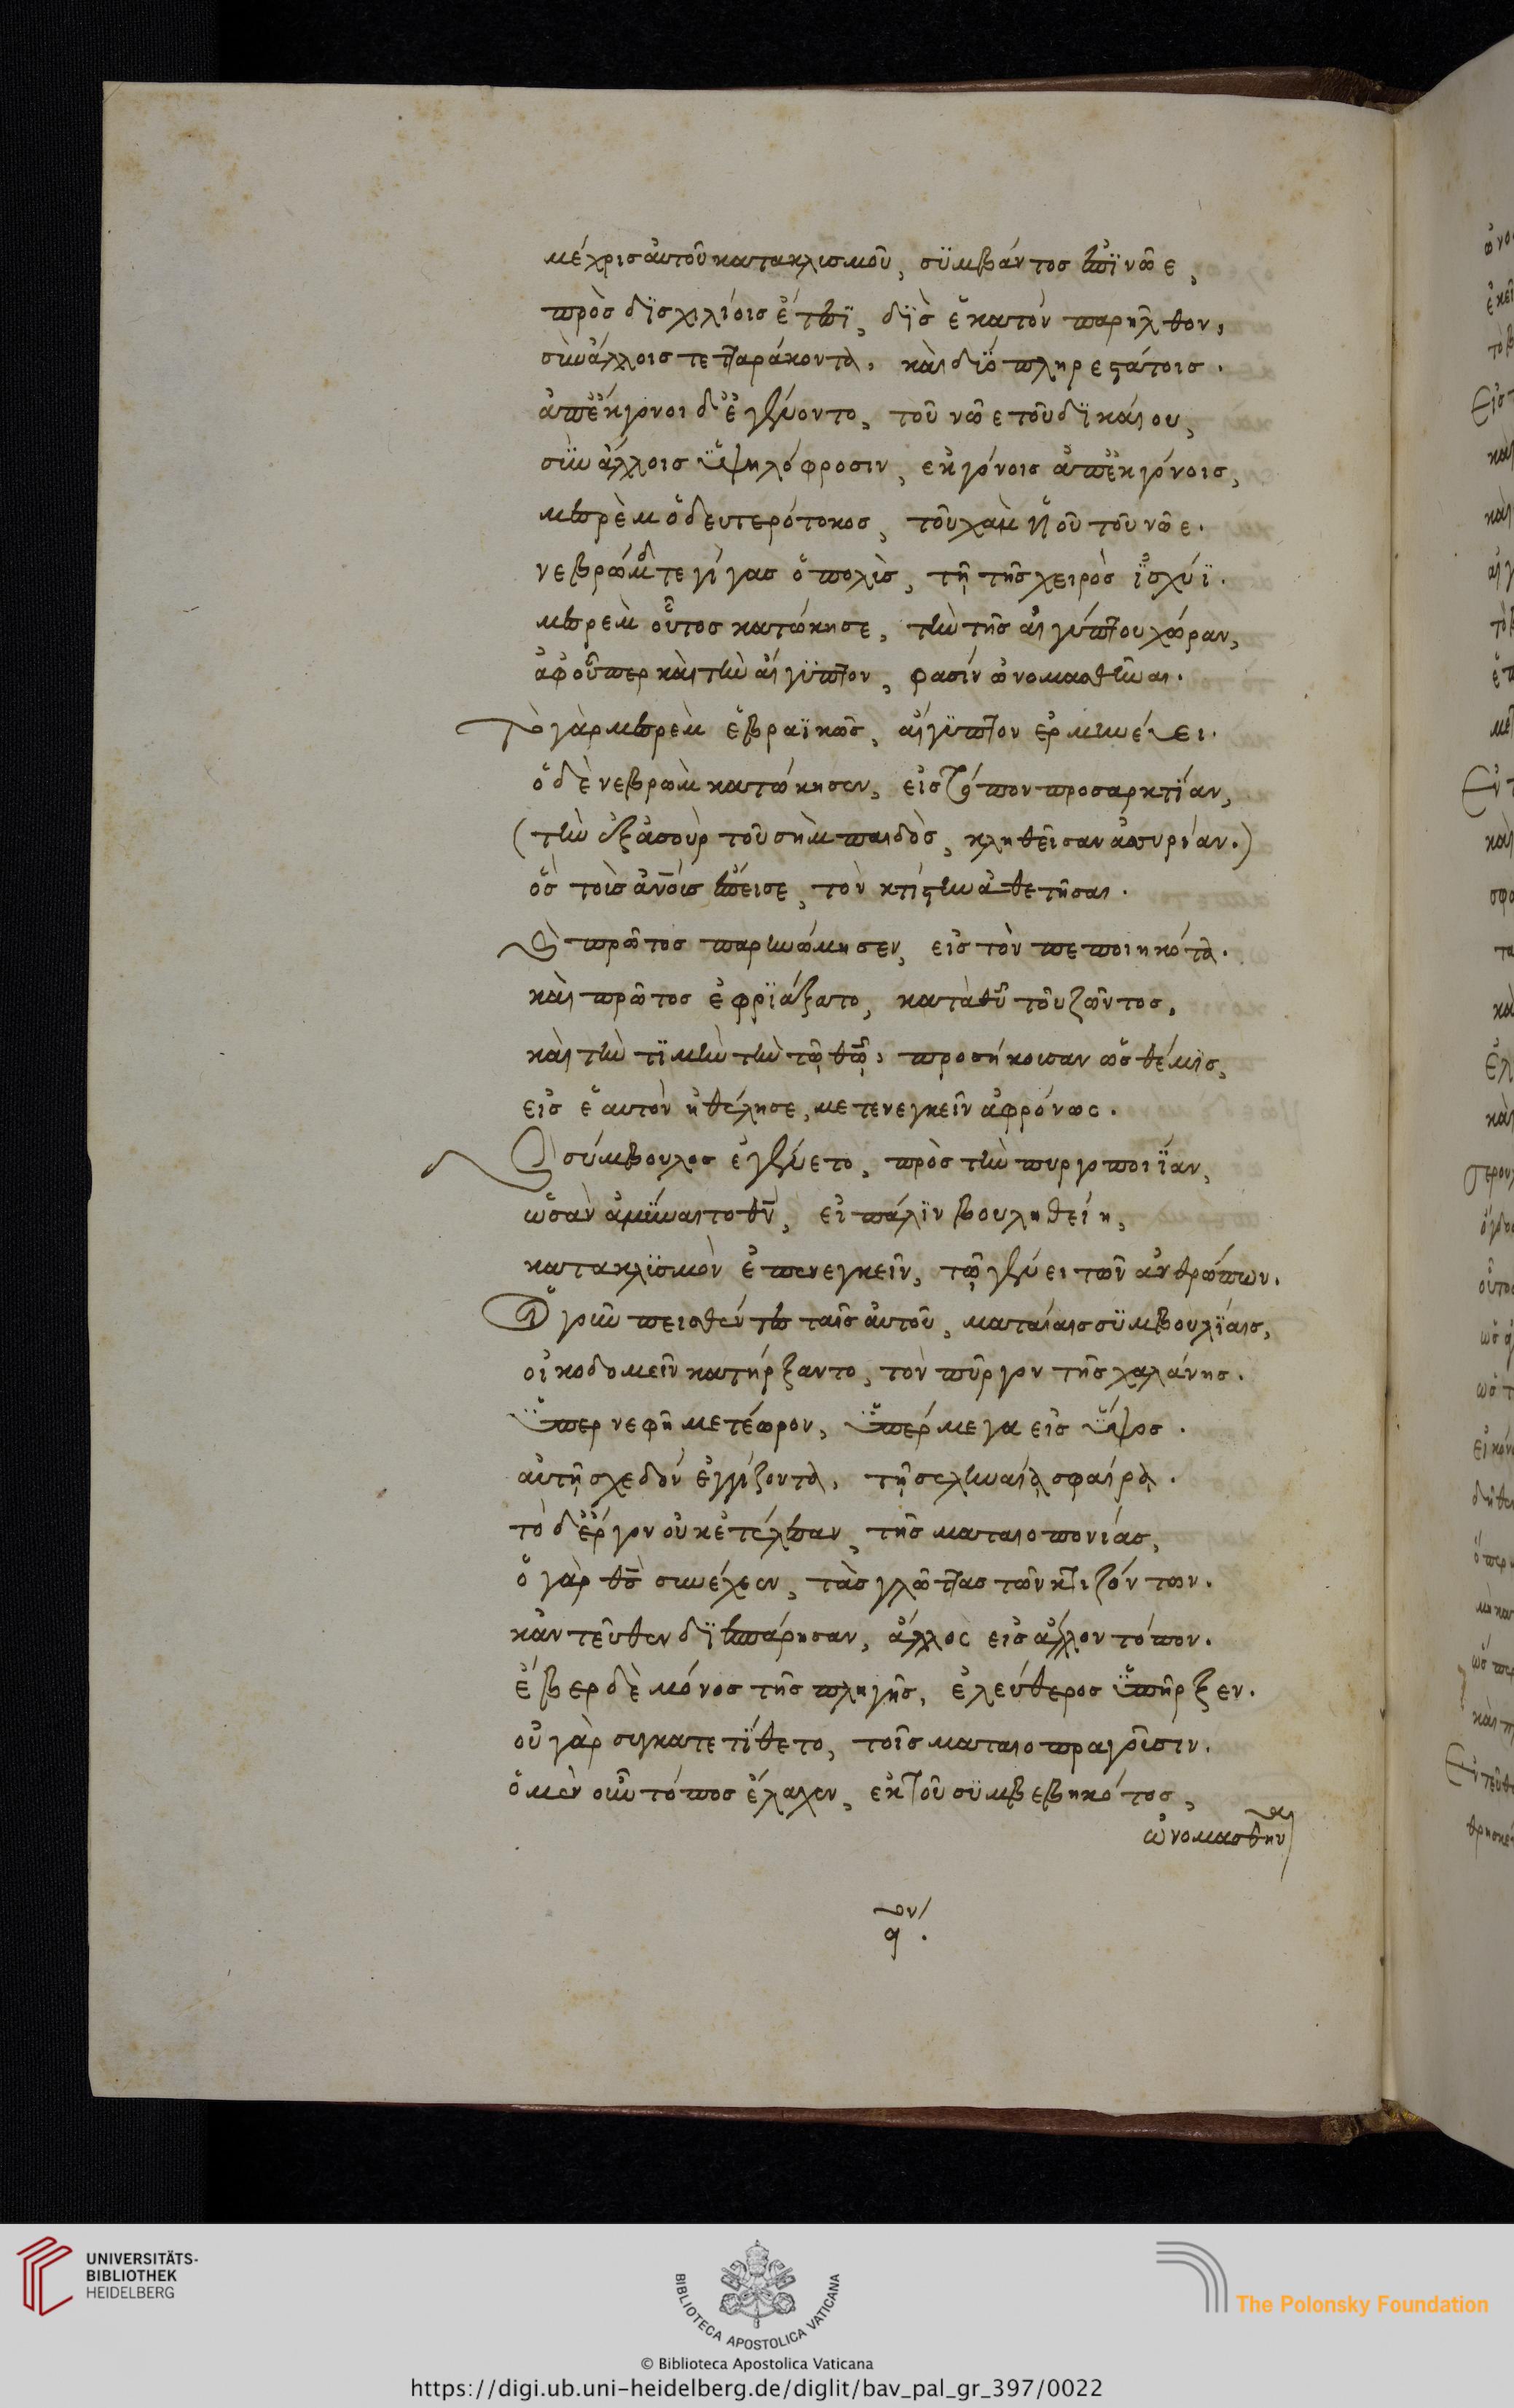 μέχρις αὐτοῦ κατακλισμοῦ, σϋμβάντος ἐπῒ νῶε,
πρὸς δϊσχιλίοις ἔτεσϊ, δῒς ἑκατὸν παρῆλθον,
σὺν ἄλλοις τετταράκοντα, καὶ δϋὸ πληρεστάτοις.
ἀπέκγονοι δ' ἐγένοντο, τοῦ νῶε τοῦ δϊκαίου,
σὺν ἄλλοις ὑψηλόφροσιν, ἐκγόνοις ἀπεκγόνοις,
μεσρὲμ ὁ δευτερότοκος, τοῦ χὰμ υἱοῦ τοῦ νῶε.
νεβρώδ τε γίγας ὁ πολὺς, τῇ τῆς χειρὸς ἰσχύϊ.
μεσρεὰμ οὗτος κατώκησε, τὴν τῆς αἰγύπτου χώραν,
ἀφ οὗπερ καὶ τὴν αἴγϋπτον, φασὶν ὠνομασθῆναι.
Τὸ γὰρ μεσρεὰμ ἑβραϊκῶς, αἴγϋπτον ἑρμηνεύει.
ὁ δὲ νεβρὼμ κατώκησεν, εἰς τόπον προσαρκτίαν,
(τὴν ἐξ ἀσοὺρ τοῦ σὴμ παιδὸς, κληθεῖσαν ἀσσυρίαν.)
ὃς τοῖς ἀνοῖς ἔπεισε, τὸν κτίστην ἀθετῆσαι.
Ὁ πρῶτος παρηνώμησεν, εἰς τὸν πεποιηκότα.
καὶ πρῶτος ἐφρϊάξατο, κατὰ θῦ τοῦ ζῶντος,
καὶ τὴν τϊμὴν τὴν τῷ θῷ, προσήκουσαν ὡς θέμις,
εἰς ἑαυτὸν ἠθέλησε, μετενεγκεῖν ἀφρόνως.
Ὃ σύμβουλος ἐγένετο, πρὸς τὴν πυργοποιΐαν,
ὡς ἂν ἀμύναιτο θν̄, εἰ πάλϊν βουληθείη,
κατακλϋσμὸν ἐπενεγκεῖν, τῷ γένει τῶν ἀνθρώπων.
Οἳ γοῦν πεισθέντες ταῖς αὐτοῦ, ματαίαις σϋμβουλίαις,
οἰκοδομεῖν κατήρξαντο, τὸν πῦργον τῆς χαλάνης.
ὑπερνεφῆ μετέωρον, ὑπέρμεγα εἰς ὕψος.
αὐτῇ σχεδὸν ἐγγίζοντα, τῇ σεληναίᾳ σφαίρᾳ.
τὸ δ' ἔργον οὐκ ἐτέλεσαν, τῆς ματαιοπονίας,
ὁ γὰρ θς̄ συνέχεεν, τὰς γλώττας τῶν κτιζόντων.
κἀντεῦθεν δϊεσπάρησαν, ἄλλος εἰς ἄλλον τόπον.
ἔβερ δὲ μόνος τῆς πληγῆς, ἐλεύθερος ὑπῆρξεν.
οὐ γὰρ συγκατετίθετο, τοῖς ματαιοπραγοῦσιν.
ὁ μὲν οὖν τόπος ἔλαχεν, ἐκ τοῦ σϋμβεβηκότος,
ὠνομασθῆναι
ον
https://digi.ub.uni-heidelberg.de/diglit/bav_pal_gr_397/0022
UNIVERSITÄTS-
BIBLIOTHEK
HEIDELBERG
BIBLIOTECA APOSTOLICA VATICANA
© Biblioteca Apostolica Vaticana
The Polonsky Foundation